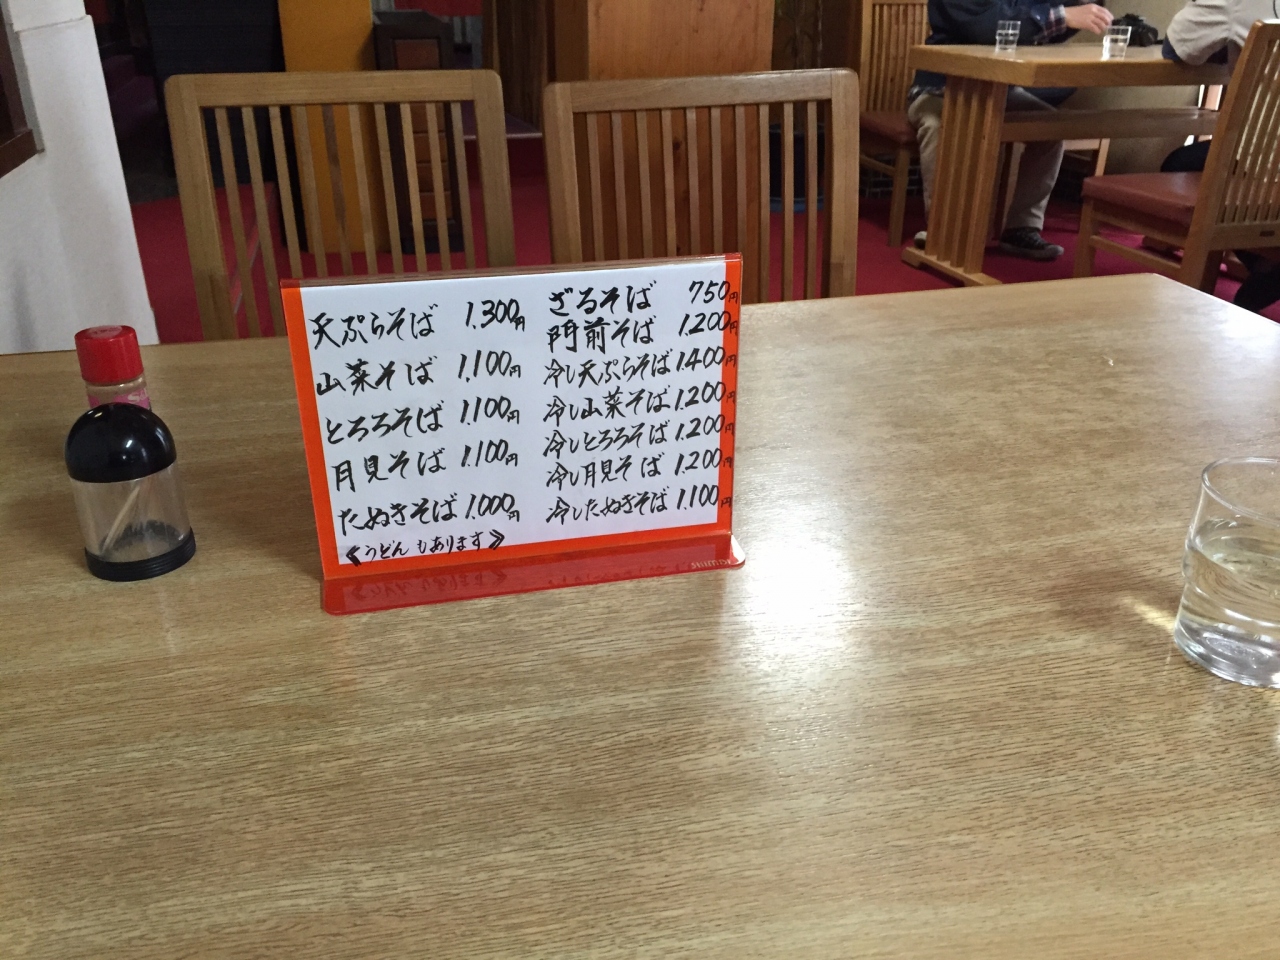 天ぷらそば 1.300円
山菜そば 1.100円
とろろそば 1.100円
月見そば 1.100円
たぬきそば 1.000円
《うどんもあります》
ざるそば 750円
門前そば 1.200円
冷し天ぷらそば 1.400円
冷し山菜そば 1.200円
冷しとろろそば 1.200円
冷し月見そば 1.200円
冷したぬきそば 1.100円